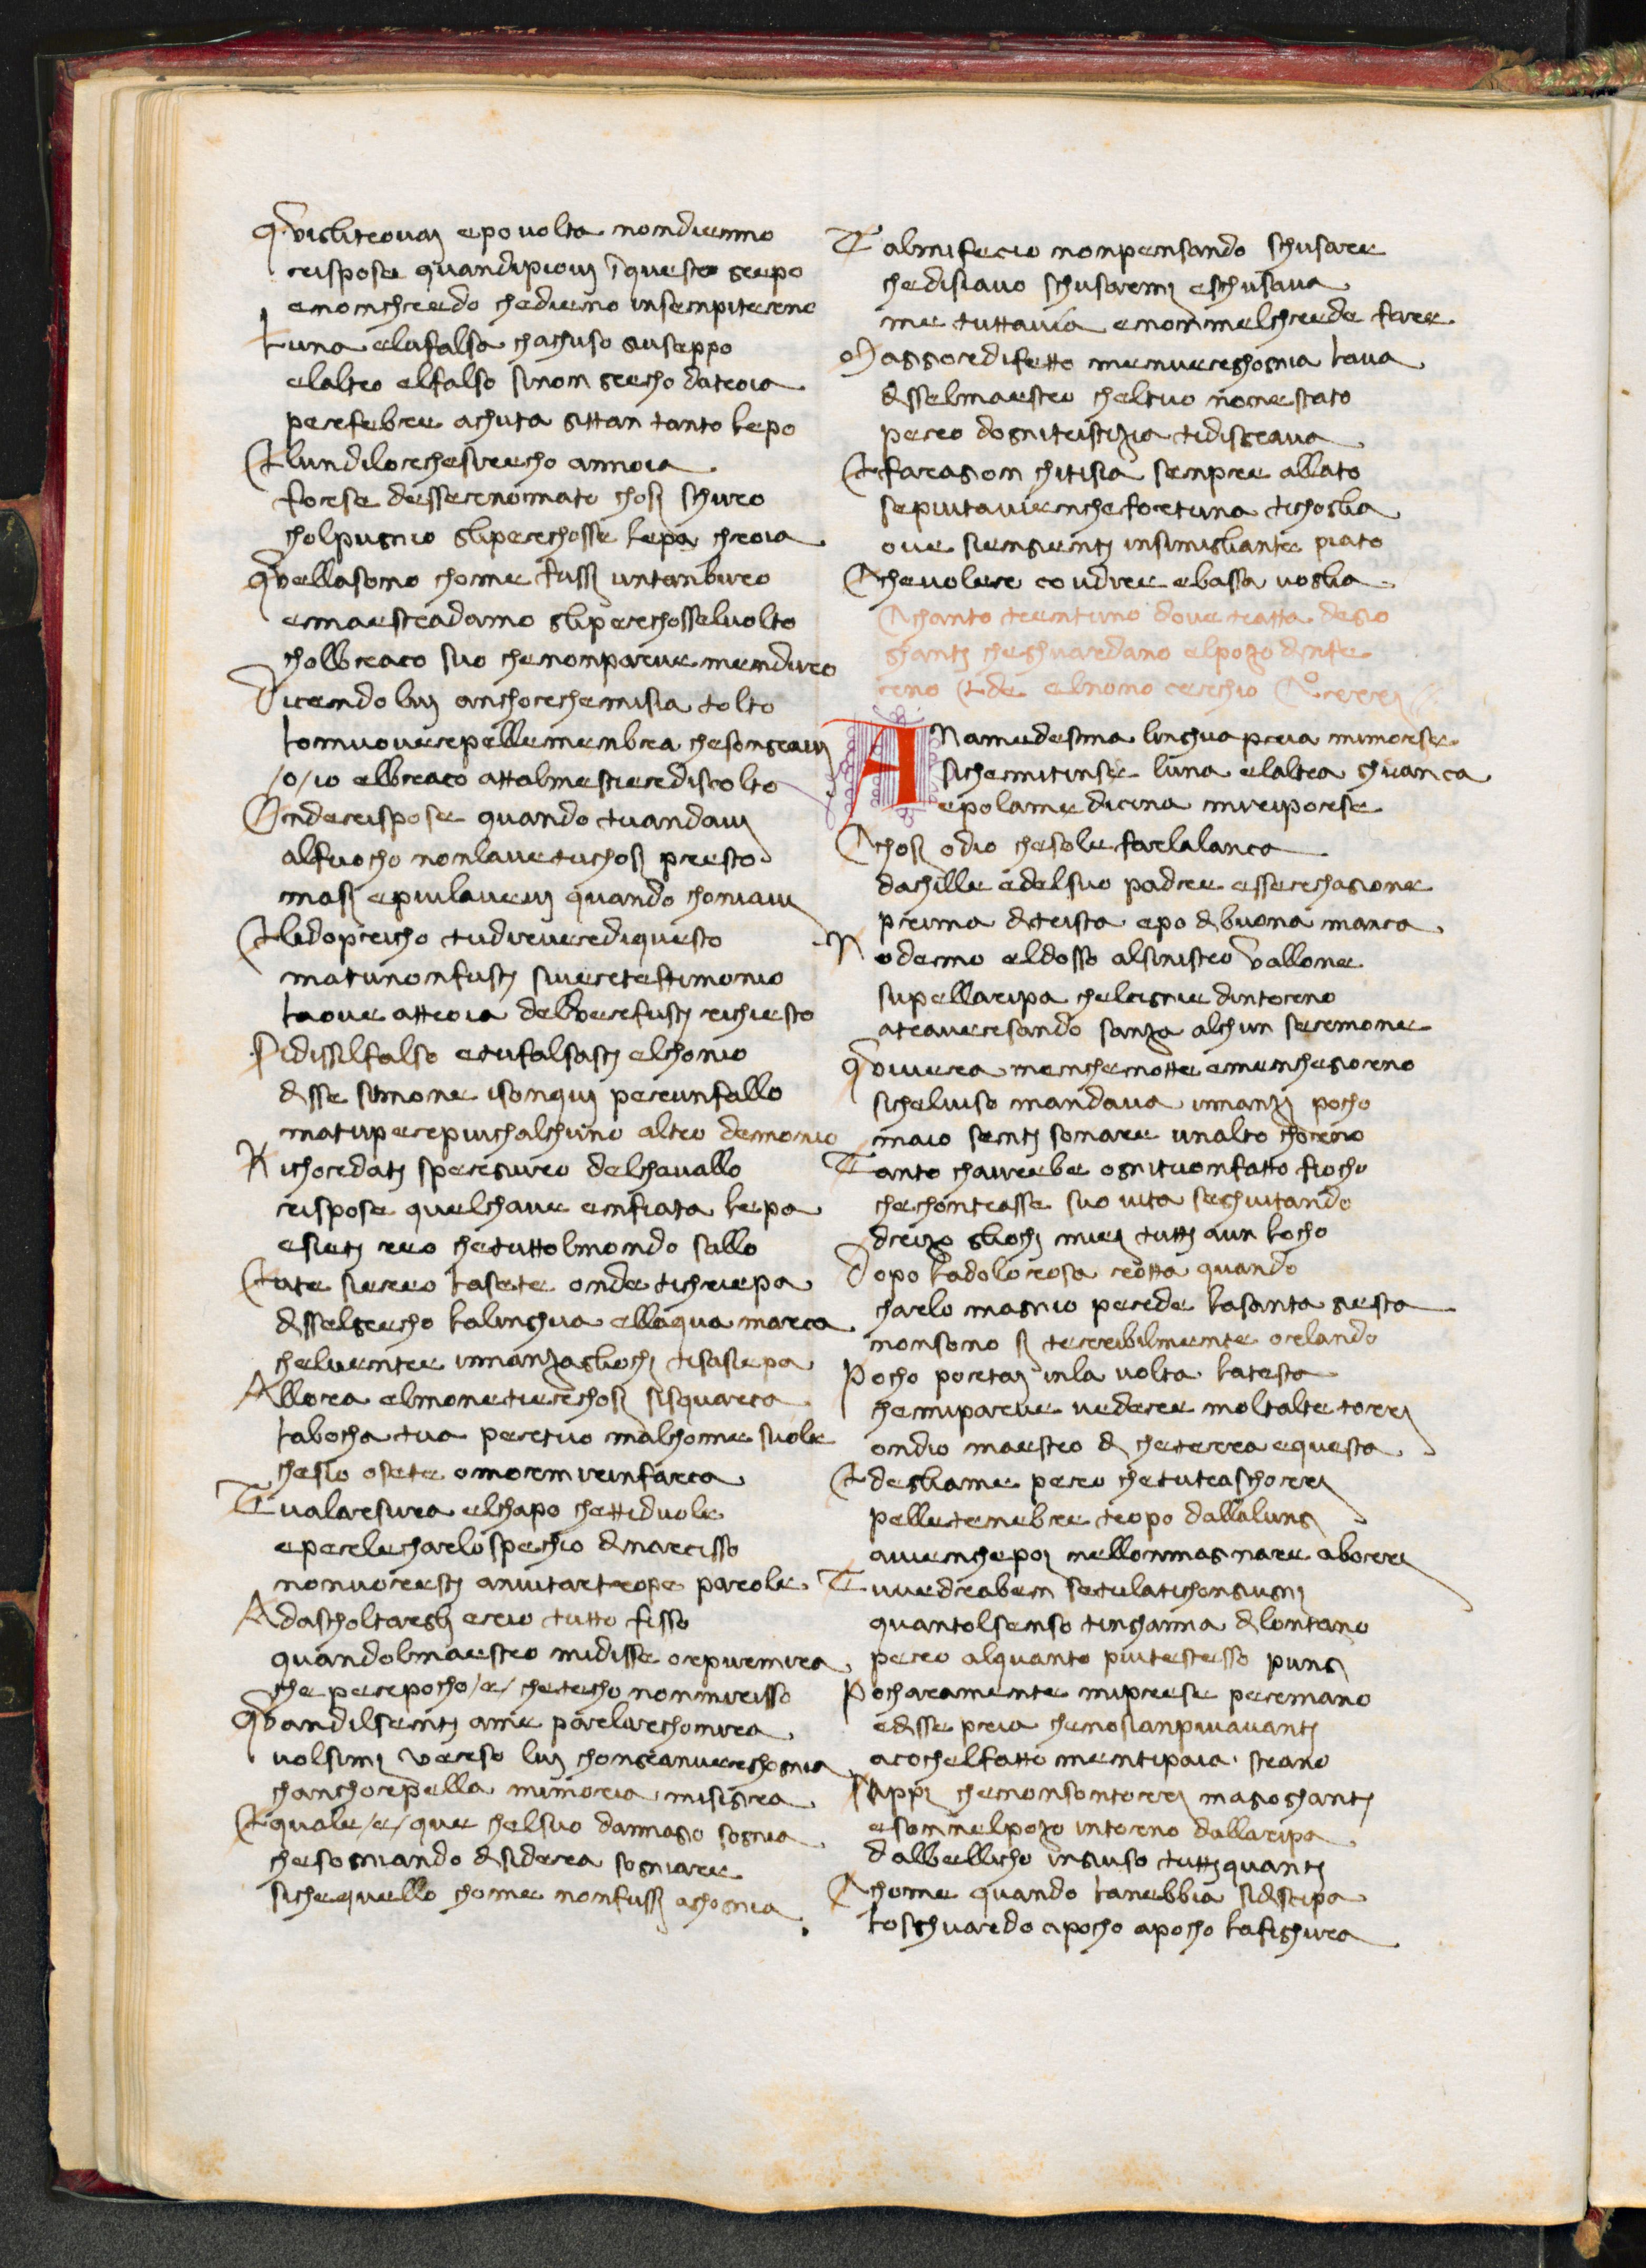 Qvigliтrovai epovolta nondienno
rispose quandipiovi ī questo greppo
enonchredo chedieno insenpiterno
Luna elafalsa chachuso guseppo
elaltro elfalso sinon grecho datroia
perfebre achuta gittan tanto leppo
Elundilorchesirecho annoia
forse dessernomato chosi schuro
cholpugnio gliperchosse lepa chroia
Quellasono chome fussi untanburo
emaestradamo gliperchosselvolto
cholbraco suo chenonparve menduro
Dicendo lui anchorchemisia tolto
lomuoverpellemenbra chesongravi
/o/io elbraco attalmestierdisciolto
Onderispose quando tuandavi
alfuocho nonlavetuchosi presto
masi epiulavevi quando choniavi
Elidropricho tudiveredi questo
matunonfusti siveretestimonio
laove attroia delverfusti richiesto
Sidissilfalso etufalsasti elchonio
disse simone isonqui perunfallo
matuperpiuchalchuno altro demonio
Richordati spergiuro delchavallo
rispose quelchave enfiata lepa
esieti reo chetuttolmondo sallo
Eate siereo lasete onde tichriepa
disselgrecho lalinghua ellaqua marca
chelventre innanzagliochi tisasiepa
Allora elmonetierchosi sisquarca
labocha tua pertuo malchome suole
chesio osete omormirinfarca
Tualarsura elchapo chettiduole
eperlecharlospechio dinarcisso
nonvoresti anvitartrope parole
Adascholtargli erio tutto fisso
quandolmaestro midisse orpurmira
che perpocho /e/ chetecho nonmirisso
Quandilsenti ame parlarechonira
volsimi verso lui chongranverghognia
chanchorpella mimoria misigira
Equale /e/ que chelsuo dannagio sognia
chesogniando disidera sogniare
sichequello chome nonfussi aghognia
Talmifecio nonpensando schusare
chedisiavo schusarmi eschusava
me tuttavia enonmelchrede fare
Maggiordifetto menverghognia lava
disselmaestro cheltuo none stato
pero dognitristizia tidisgrava
Efaragion chitisia senpre allato
sepiutavienchefortuna tichoglia
ove siengienti insimigliante piato
Chevolere coudire ebassa voglia
Chanto trentuno dove tratta degio
ghanti cheghuardano elpozo dinfe
rno Ede elnono cerchio
ANamedesma linghuapria mimorse
sichemitinse luna elaltra ghuanca
epolame dicina miriporse
Chosi odio chesole farlalanca
dachille edelsuo padre esserchagione
prima ditrista epo dibuona manca
Noderno eldosso alsinistro vallone
supellaripa chelcignie dintorno
atraversando sanza alchun sermone
Quivera menchenotte emenchegiorno
sichelviso mandava innanzi pocho
maio senti sonare unalto chorno
Tanto chavrebe ognituonfatto fiocho
chechontrasse suo vita seghuitando
drizo gliochi miei tutti aun locho
Dopo ladolorosa rotta quando
charlo magnio perde lasanta gesta
nonsono si terribilmente orlando
Pocho portai inla volta latesta
chemiparve vedere moltalte torri
ondio maestro di cheterra equesta
Edegliame pero chetutraschorri
pelletenebre tropo dallalungi
avienchepoi nellonmagnare aborri
Tuvedrabem setulatichongiugni
quantolsenso tinghanna dilontano
pero alquanto piutestesso pungi
Pocharamente miprese permano
edisse pria chenosianpiuavanti
aciochelfatto mentipaia strano
Sappi chenonsontorri magioghanti
esonnelpozo intorno dallaripa
dalbellicho ingiuso tuttiquanti
Chome quando lanebbia sidistipa
losghuardo apocho apocho lafighura